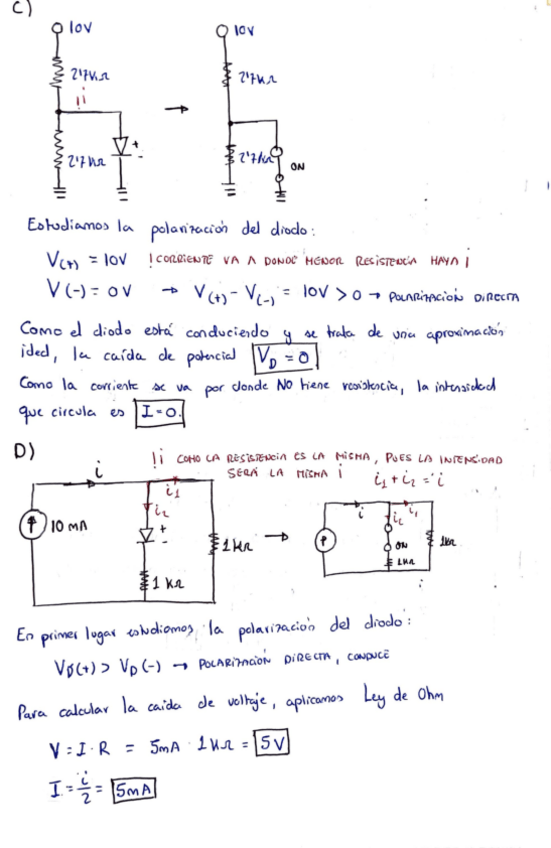 C)
10V 10V
2'7KΩ 2'7KΩ
!i
2'7KΩ + - 2'7KΩ ON
Estudiamos la polarización del diodo:
V(+) = 10V ! CORRIENTE VA A DONDE MENOR RESISTENCIA HAYA ¡
V(-) = 0V → V(+) - V(-) = 10V > 0 → POLARIZACIÓN DIRECTA
Como el diodo está conduciendo y se trata de una aproximación
ideal, la caída de potencial VD = 0
Como la corriente se va por donde NO tiene resistencia, la intensidad
que circula es I = 0.
D)
!¡ COMO LA RESISTENCIA ES LA MISMA, PUES LA INTENSIDAD
SERÁ LA MISMA ¡ i1 + i2 = i
i i1 i2
10 mA + - 1KΩ → i i2 i1 ON 1KΩ
1 KΩ 1KΩ
En primer lugar estudiamos, la polarización del diodo:
VD(+) > VD(-) → POLARIZACIÓN DIRECTA, CONDUCE
Para calcular la caida de voltaje, aplicamos Ley de Ohm
V = I · R = 5mA · 1KΩ = 5V
I = i/2 = 5mA